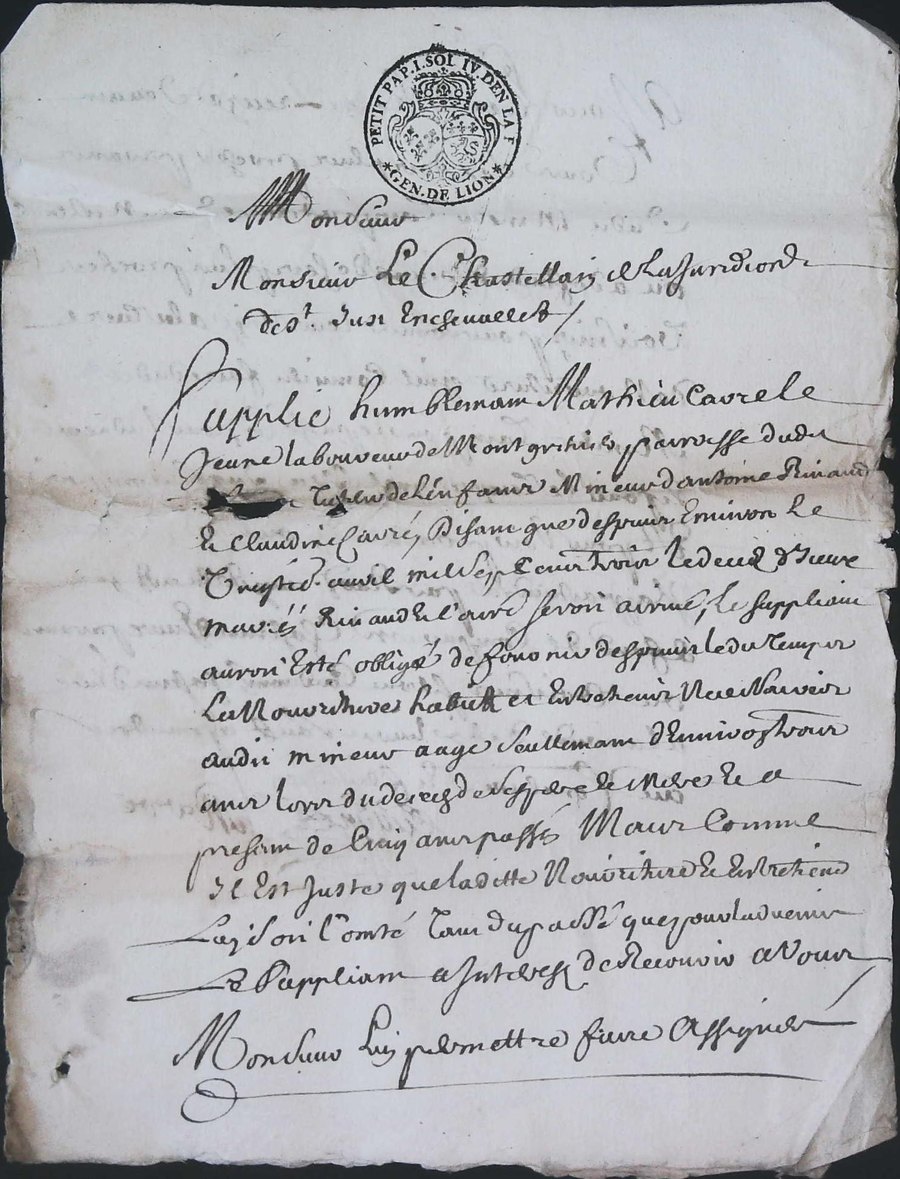 PETIT PAP. I. SOL IV. DEN LA F
*GEN. DE LION*
Monsieur
Monsieur Le Chastellain de la Juridiond
de St Just Enchevallet /
Supplie humblemant Mathieu Cavre le
Jeune laboureur de paroisse dudit
Tuteur de lenfant Mineur dantoine Rinaud
et Claudine Cavré, Disant que despuis Environ le
avril mil sept cent trois le deces diceux
mariés Rinaud et Cavré seroit arrivé, le suppliant
auroit Esté obligé de fornir despuis ledit Temps
La Nourriture habits et Entretenir Necessaires
audit mineur aagé seullemant d'Environ trois
ans lors du deces desdes pere et Mere et a
presant de Cinq ans passés Mais Comme
Il Est Juste que laditte Nouriture et Entretiend
Luy soit Comté Tant du passé que pour ladvenir
Le Suppliant a Interest de Recourir a Vous
Monsieur Luy permettre faire Assigner